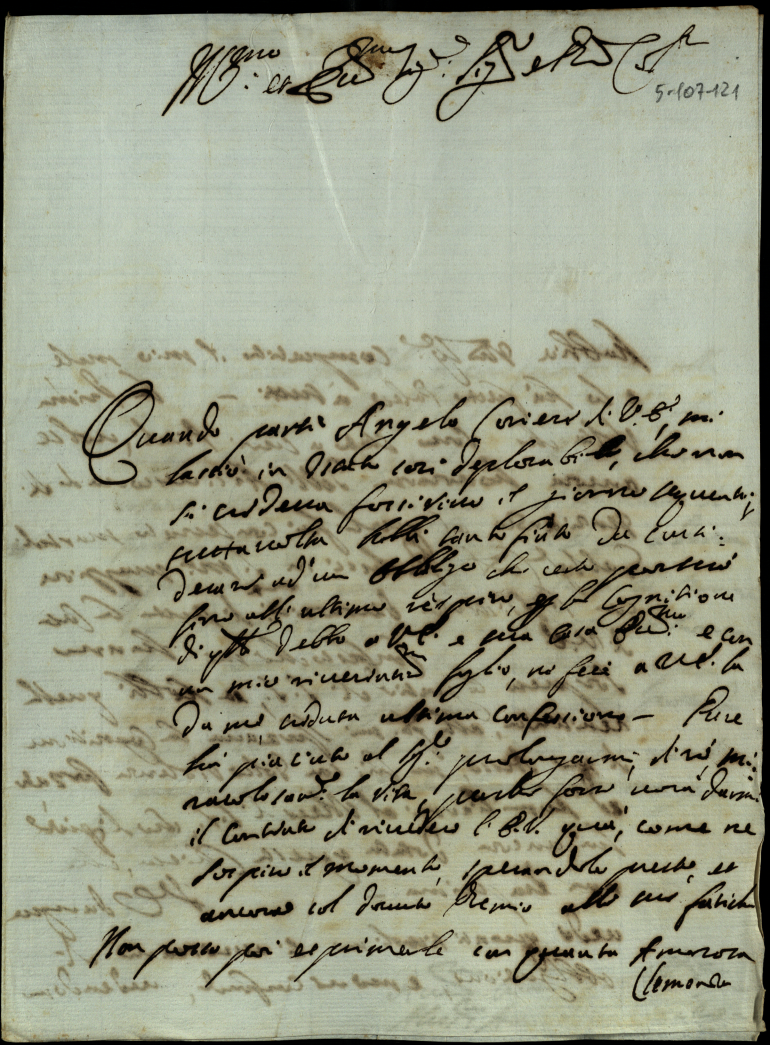 Ill.mo et Ecc.mo Sig.r Sig.r e P.ron Col.mo
5-107-121
Quando partì Angelo Coriere di V.E., mi
lasciò in stato così deplorabile, che non
si credeva sortivivo il giorno seguente,
tuttavolta hebbi tanto fiato da
ad un obbligo che certo porterò
sino all'ultimo respiro, e la cognitione
di q.to debbo a V.E. e sua Casa Ecc.ma e con
un mio riverent.mo foglio, ne feci a V.E. la
da me creduta ultima confessione — Pure
hà piaciuto al Sig.re prolongarmi, dirò, mi
racolosam.te la vita, perche forse vorà darmi
il contento di rivedere l'E.V. quà, come ne
sospiro il momento, sperandolo presto, et
ancora col dovuto Premio alle sue fatiche
Non posso poi esprimerle con quanta Amorosa